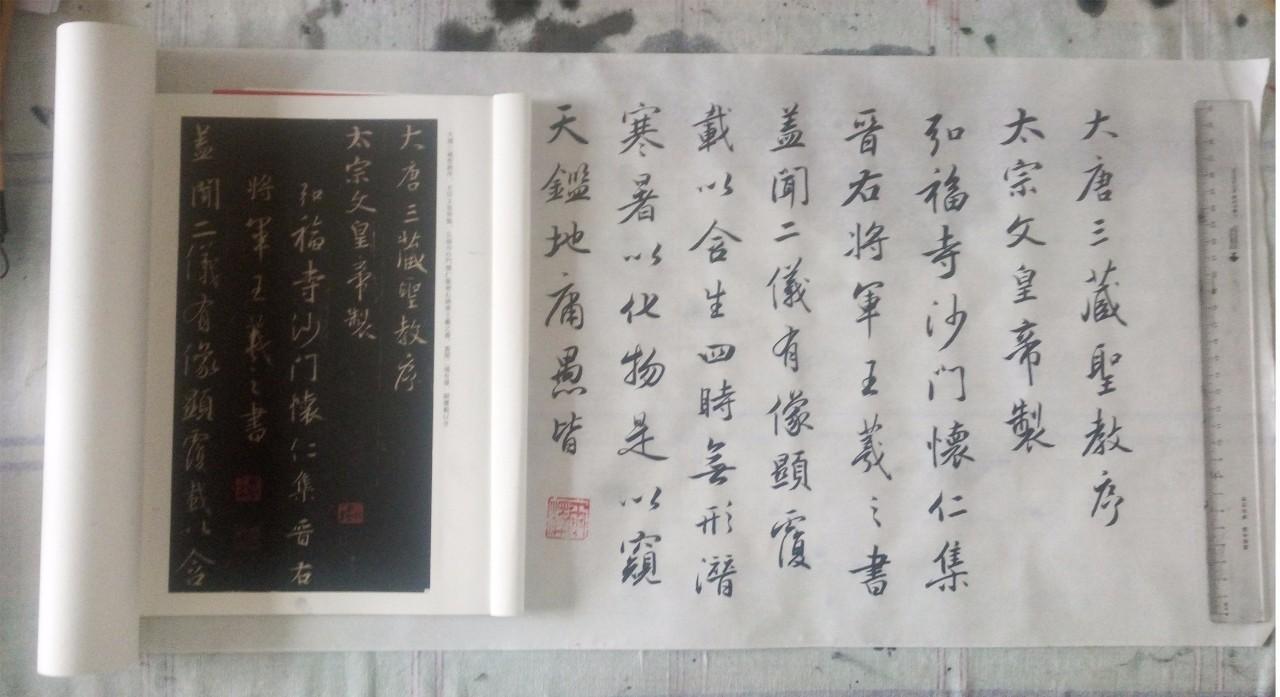 大唐三藏聖教序
太宗文皇帝製
弘福寺沙門懷仁集
晉右將軍王羲之書
蓋聞二儀有像顯覆
載以含生四時無形潛
寒暑以化物是以窺
天鑑地庸愚皆
大唐三藏聖教序
太宗文皇帝製
弘福寺沙門懷仁集晉右
將軍王羲之書
蓋聞二儀有像顯覆載以含